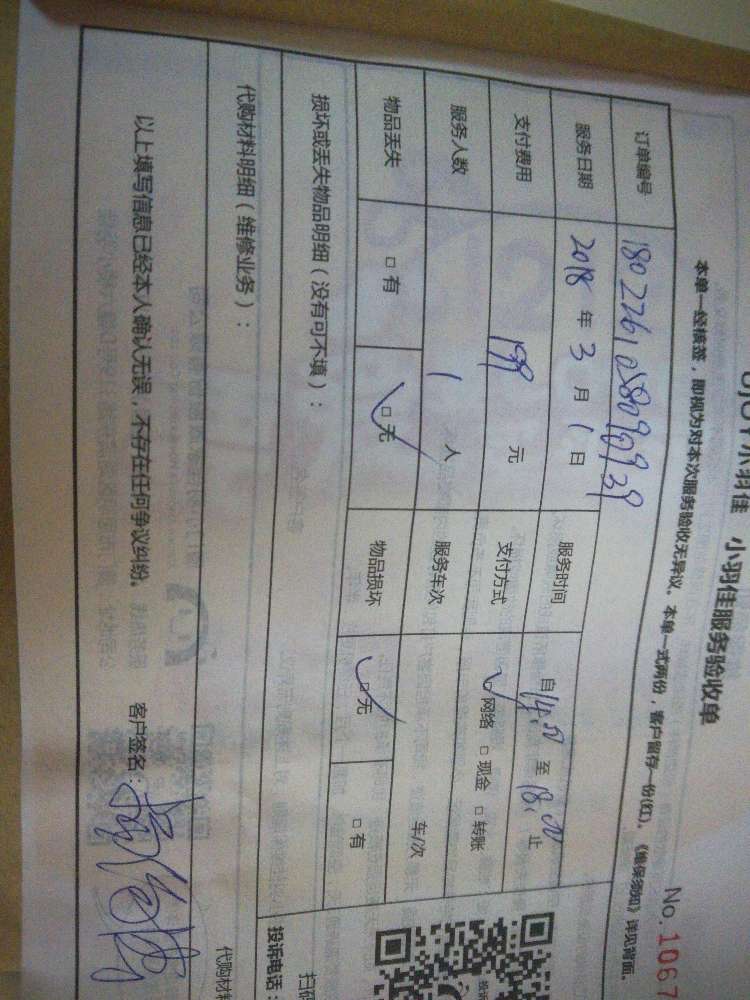 小羽佳 小羽佳服务验收单
No.1067
本单一经核签，即视为对本次服务验收无异议。本单一式两份，客户留存一份(红)。《维保须知》详见背面。
订单编号 180226105809692939
服务日期 2018 年 3 月 1 日 服务时间 自 14:00 至 18:00 止
支付费用 199 元 支付方式 ✓网络 □现金 □转账
服务人数 1 人 服务车次 车/次
物品丢失 □有 ☑无 物品损坏 ☑无 □有
损坏或丢失物品明细（没有可不填）：
代购材料明细（维修业务）：
以上填写信息已经本人确认无误，不存在任何争议纠纷。 客户签名：
扫码
投诉电话：
代购材料